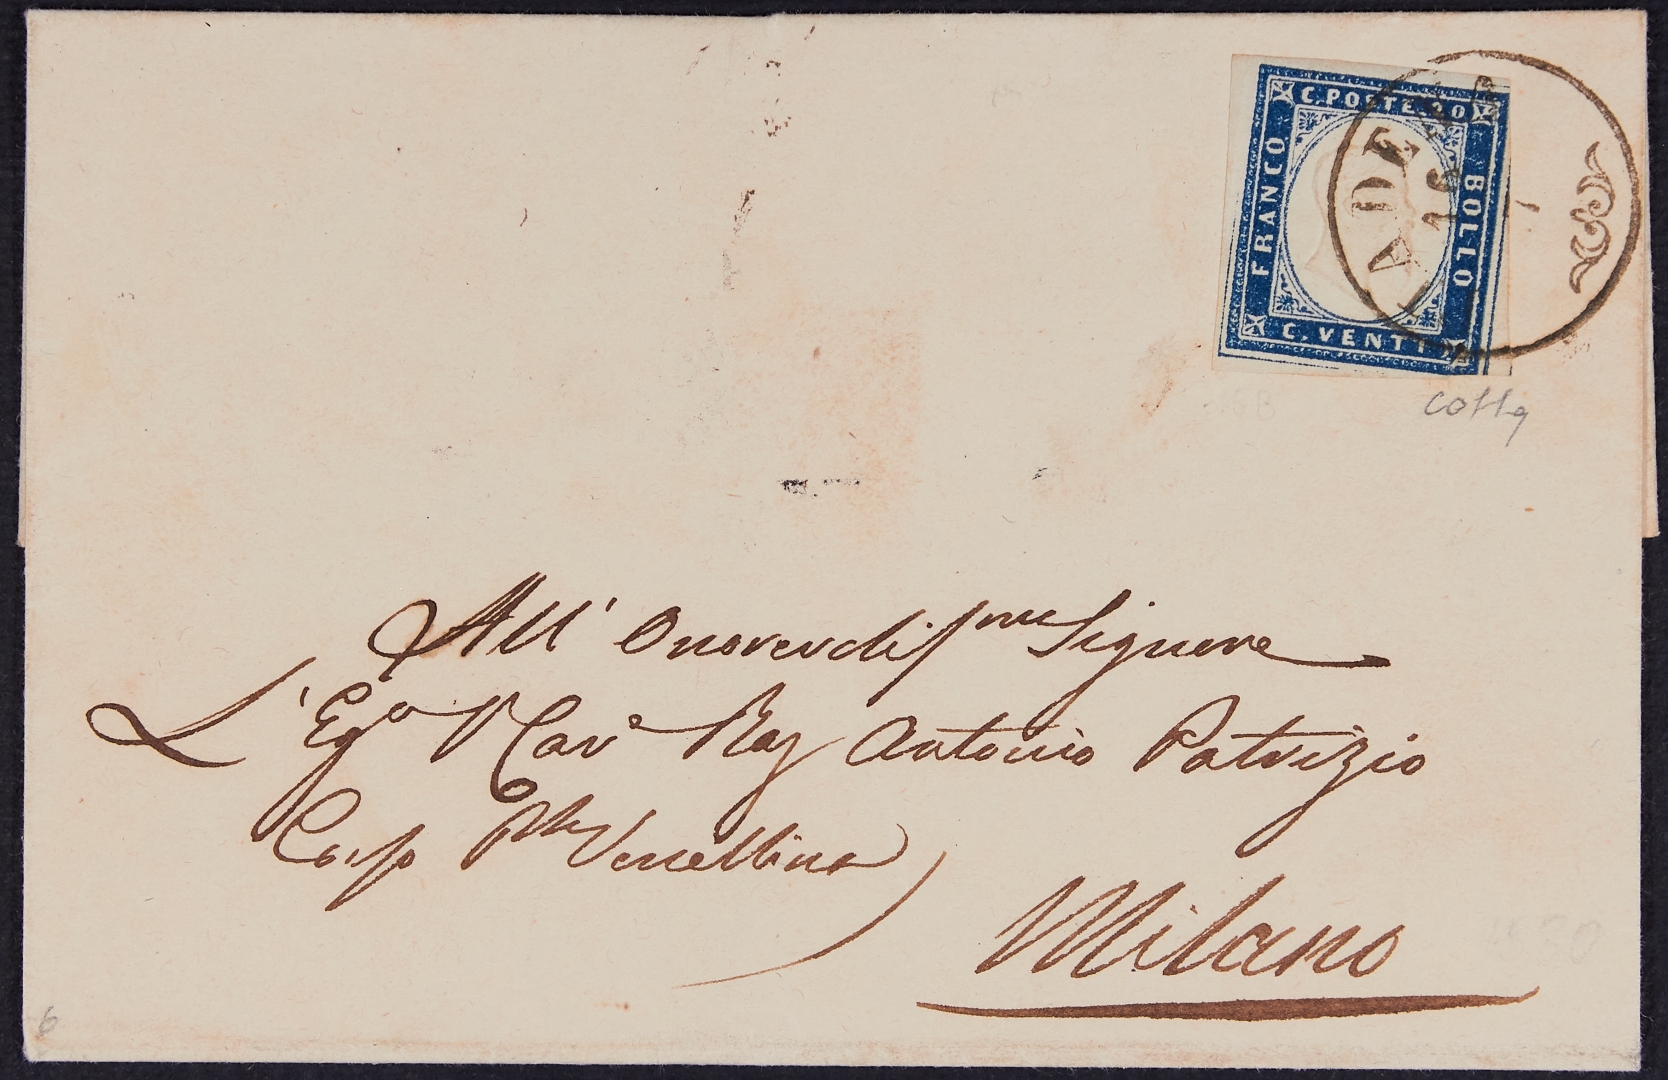 C. POSTE 20
FRANCO
BOLLO
C. VENTI
TADE
16
colla
All' Signore
L' Eg.o Cav.e Rag Antonio Patrizio
Corso P.ta Vercellina
Milano
6